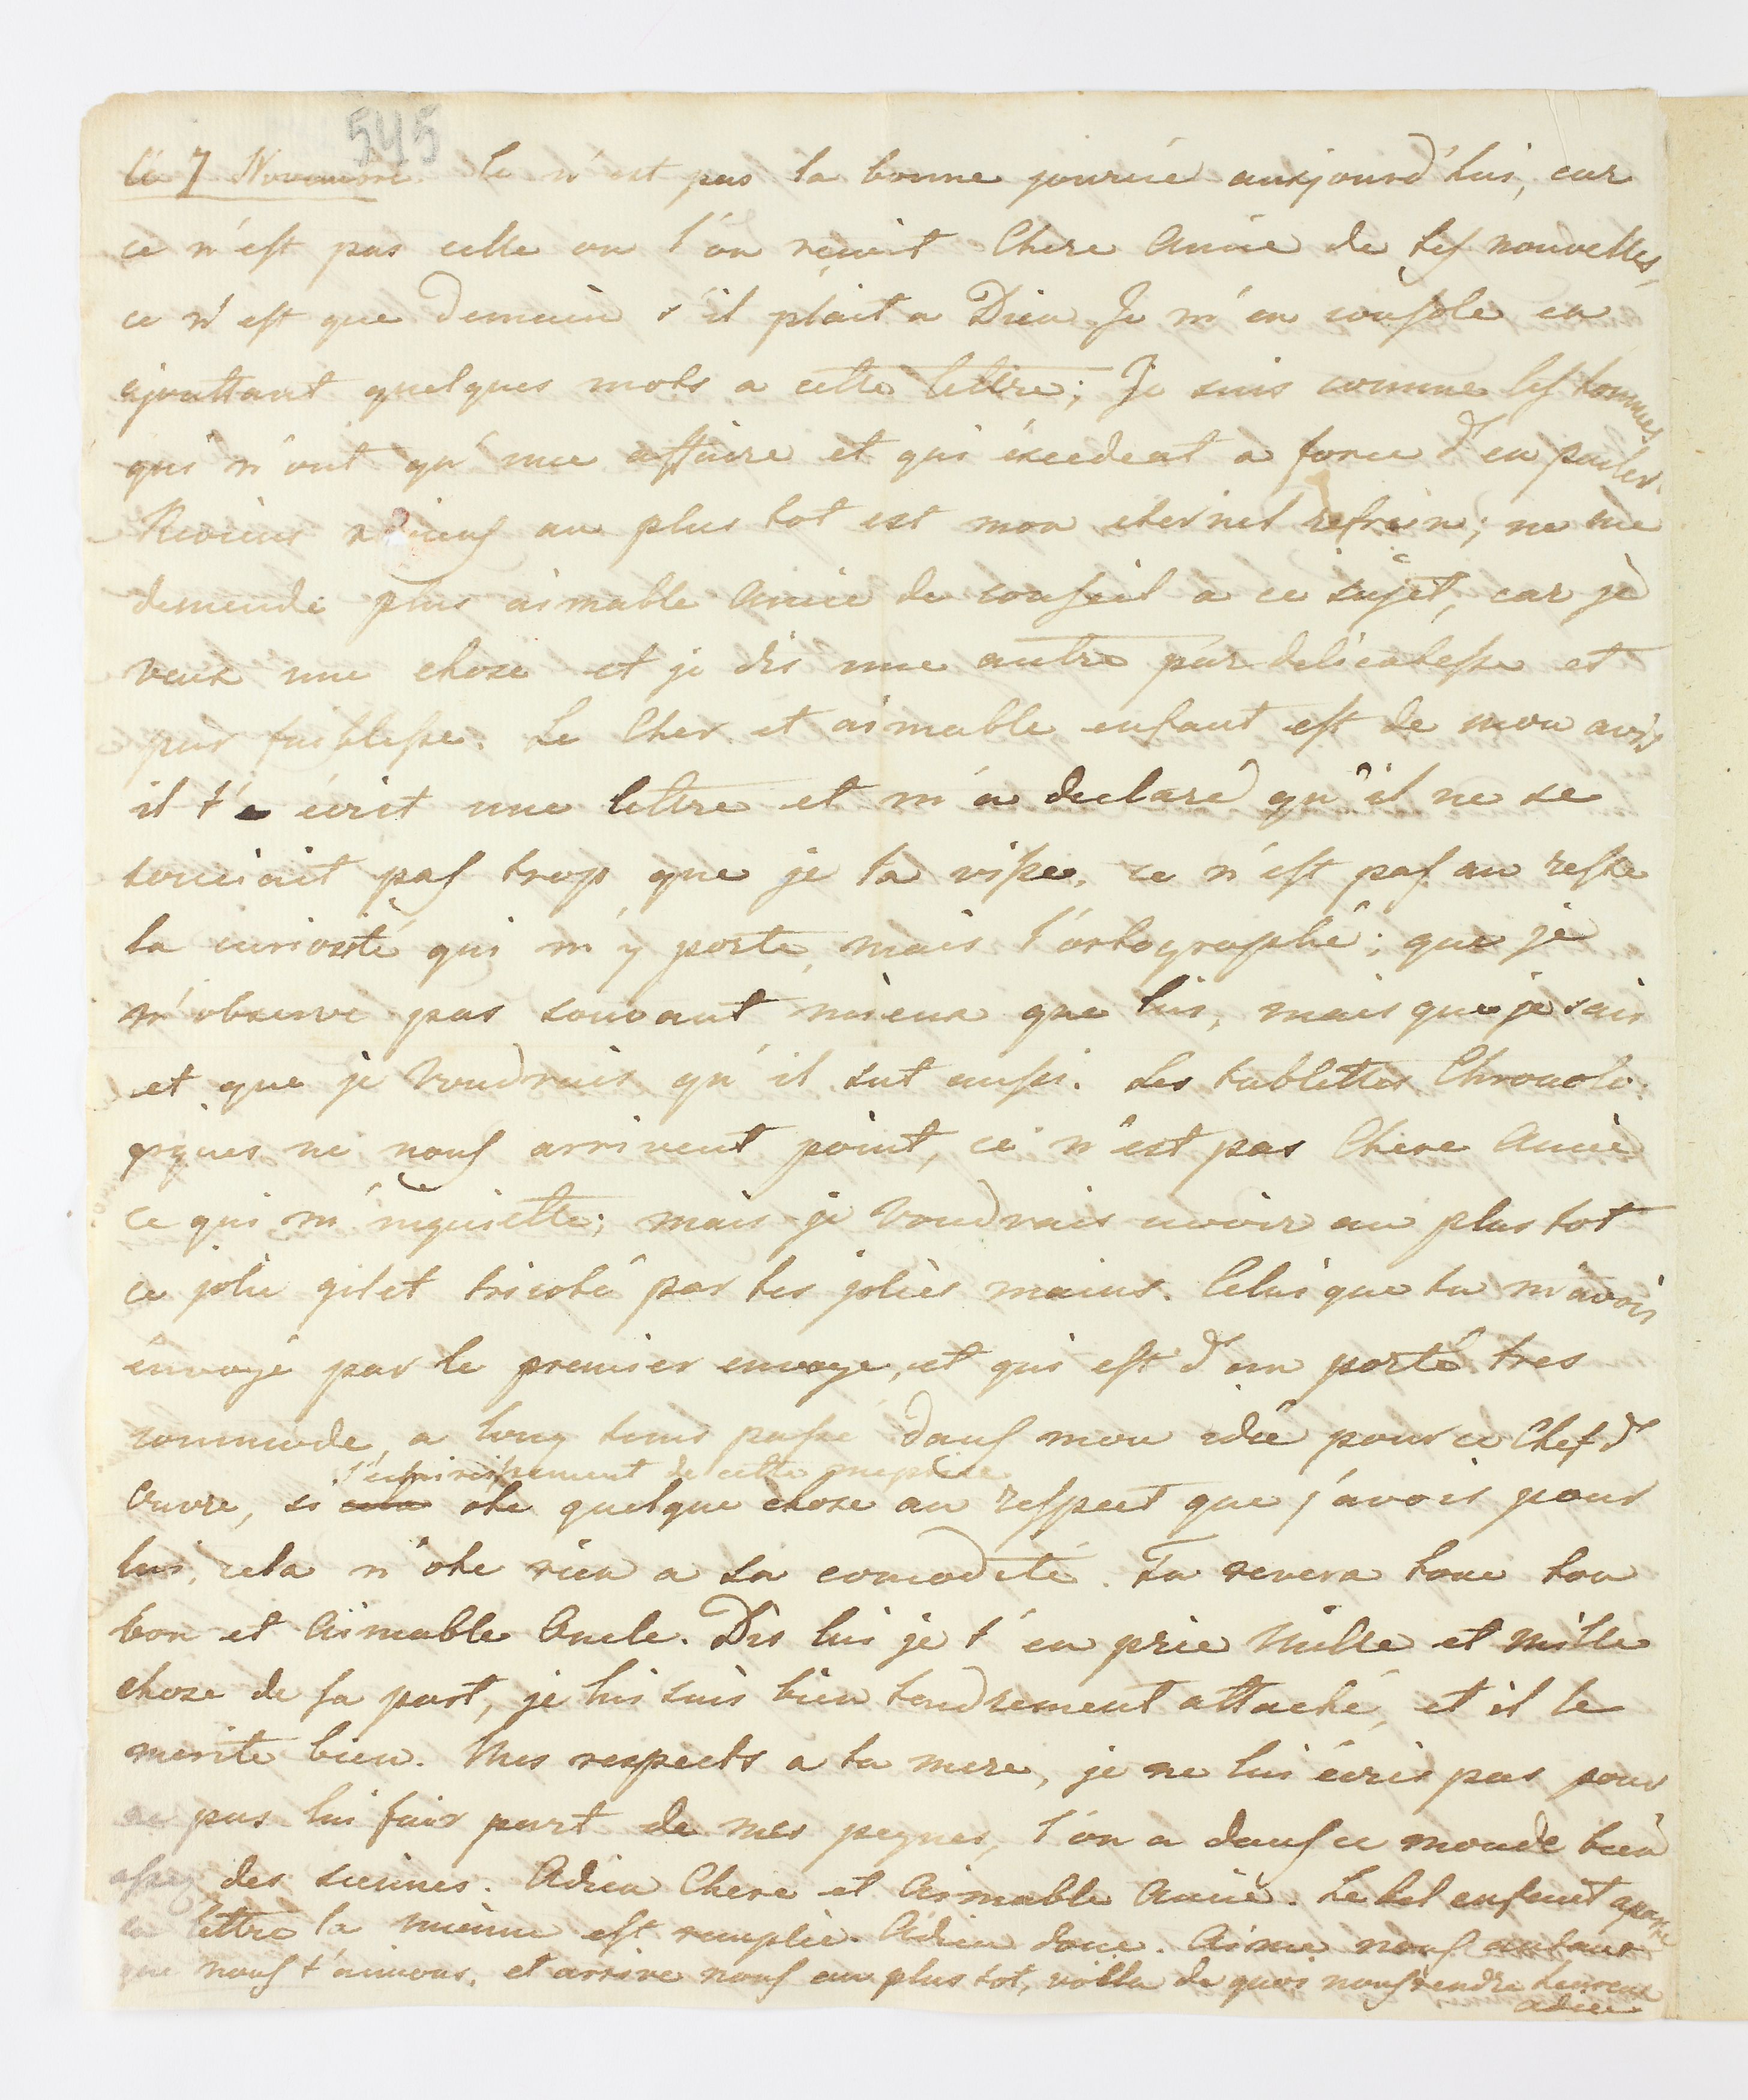 545
le 7 Novembre. Ce n'est pas la bonne journée aujourd'hui, car
ce n'est pas celle ou l'on reçoit Chere Amie de tes nouvelles,
ce n'est que demain s'il plait a Dieu. Je m'en console en
ajouttant quelques mots a cette lettre; Je suis comme les hommes
qui n'ont qu'une affaire et qui éxcedent a force d'en parler.
Reviens nous au plus tot est mon eternel refrein; ne me
demende plus aimable Amie de conseil a ce sujet, car je
veux une chose et je dis une autre par delicatesse et
par faiblesse. Le Cher et aimable enfant est de mon avis
il t'a écrit une lettre et m'a declaré qu'il ne se
souciait pas trop que je la visse, ce n'est pas au reste
la curiosité qui m'y porte, mais l'ortographe; que je
n'observe pas souvant mieux que lui, mais que je sais
et que je voudrais qu'il sut aussi. Les tablettes Chronolo-
giques ne nous arrivent point, ce n'est pas Chere Amie
ce qui m'inquiette; mais je voudrais avoir au plus tot
ce jolie gilet tricoté par tes jolies mains. Celui que tu m'avois
envoyé par le premier envoye, et qui est d'un porté tres
commode, a long tems passé dans mon idée pour ce Chef d'
Œuvre, si cela ote quelque chose au respect que j'avois pour
l'eclaircissement de cette meprise
lui, cela n'ote rien a sa comodité. Tu revera donc ton
bon et Aimable Oncle. Dis lui je t'en prie Mille et Mille
chose de sa part, je lui suis bien tendrement attaché, et il le
merite bien. Mes respects a ta mere, je ne lui écris pas pour
ne pas lui fair part de mes peynes, l'on a dans ce monde bien
assez des siennes. Adieu Chere et Aimable Amie. Le bel enfant aporte
sa lettre la mienne est remplie. Adieu donc. Aime nous autant
que nous t'aimons, et arrive nous au plus tot, voilla de quoi nous rendre heureux
adieu